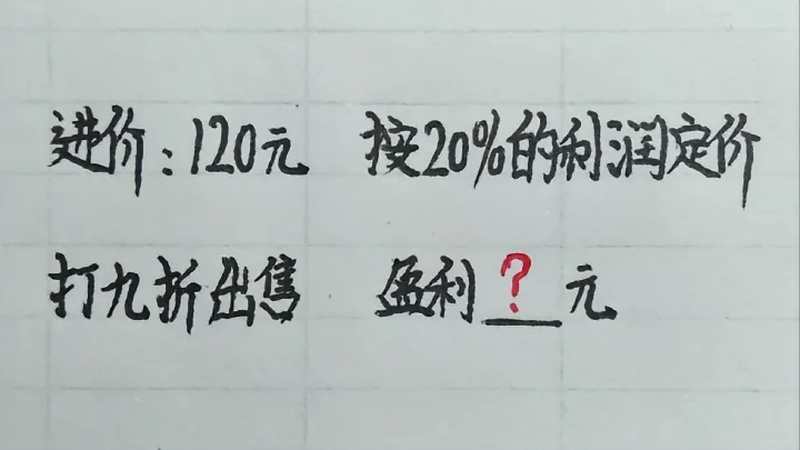 进价：120元 按20%的利润定价
打九折出售 盈利？元